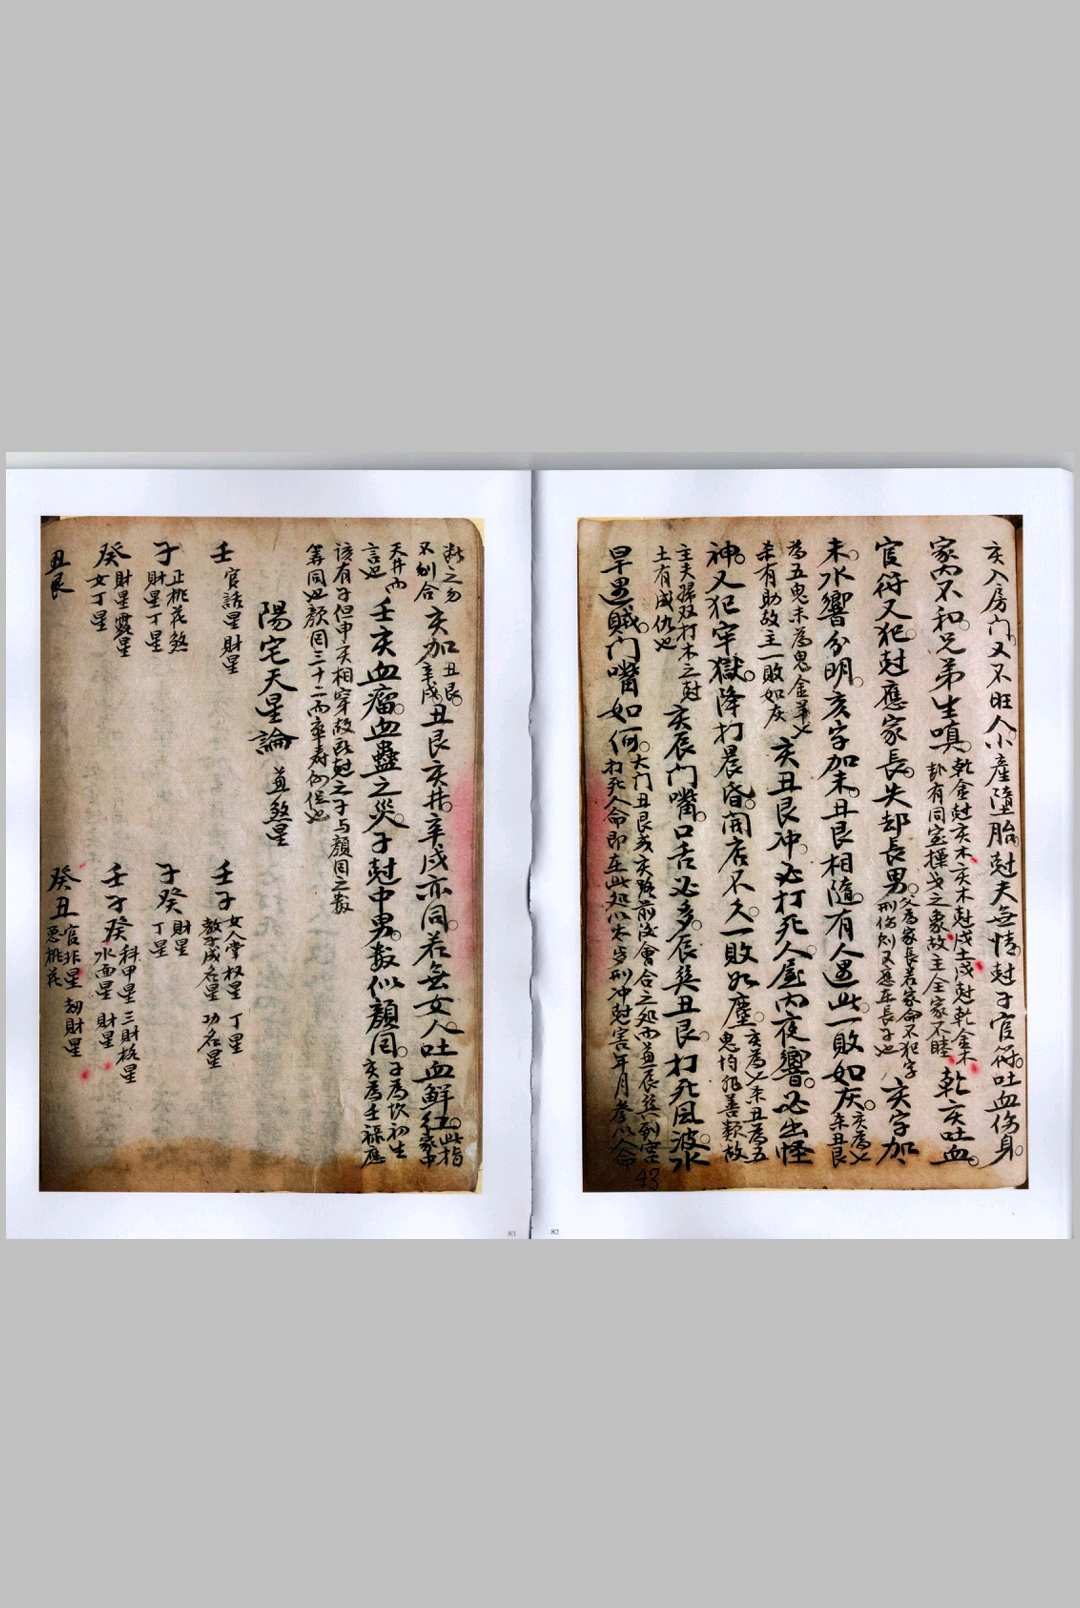 亥入房門又不旺人小產墮胎尅夫無情尅子官符吐血傷身
家內不和兄弟生嗔乾金尅亥木亥木尅戌土戌尅乾金木
卦有同室操戈之象故主全家不睦乾亥吐血
官符又犯尅應家長失却長男父為家長若家命不犯字
刑傷則又應在長子也亥字加
未水響分明亥字加未丑艮相隨有人遇此一敗如灰亥為
未丑艮
為五鬼未為鬼金羊
未有助故主一敗如灰亥丑艮冲必打死人屋內夜響必出怪
神又犯牢獄降打晨昏開店不久一敗如塵亥為
未丑為五
鬼均非善類故
主夫婦双打木之尅
土有成仇也亥辰門嘴口舌必多辰巽丑艮打死風波水
早遇賊門嘴如何大门丑艮或亥路前後會合之処而並辰巽到字
打死人命即在此処以太歲刑冲尅害年月參以人命
43
82
斷之勿
不刻合亥加丑艮
辛戌丑艮亥井辛戌亦同若無女人吐血鮮紅此指
家中
天井而
言也壬亥血瘤血蠱之災子尅中男数似顏回子為坎初生
亥為壬祿應
該有子但申亥相穿故致尅之子与顏回之数
等同也顏回三十二而卒壽
陽宅天星論並煞星
壬官話星財星
壬子女人掌权星丁星
教子成名星功名星
子正桃花煞
財星丁星
子癸財星
丁星
癸財星
女丁星
壬子癸科甲星三財核星
水面星財星
丑艮
癸丑官非星劫財星
惡桃花
83